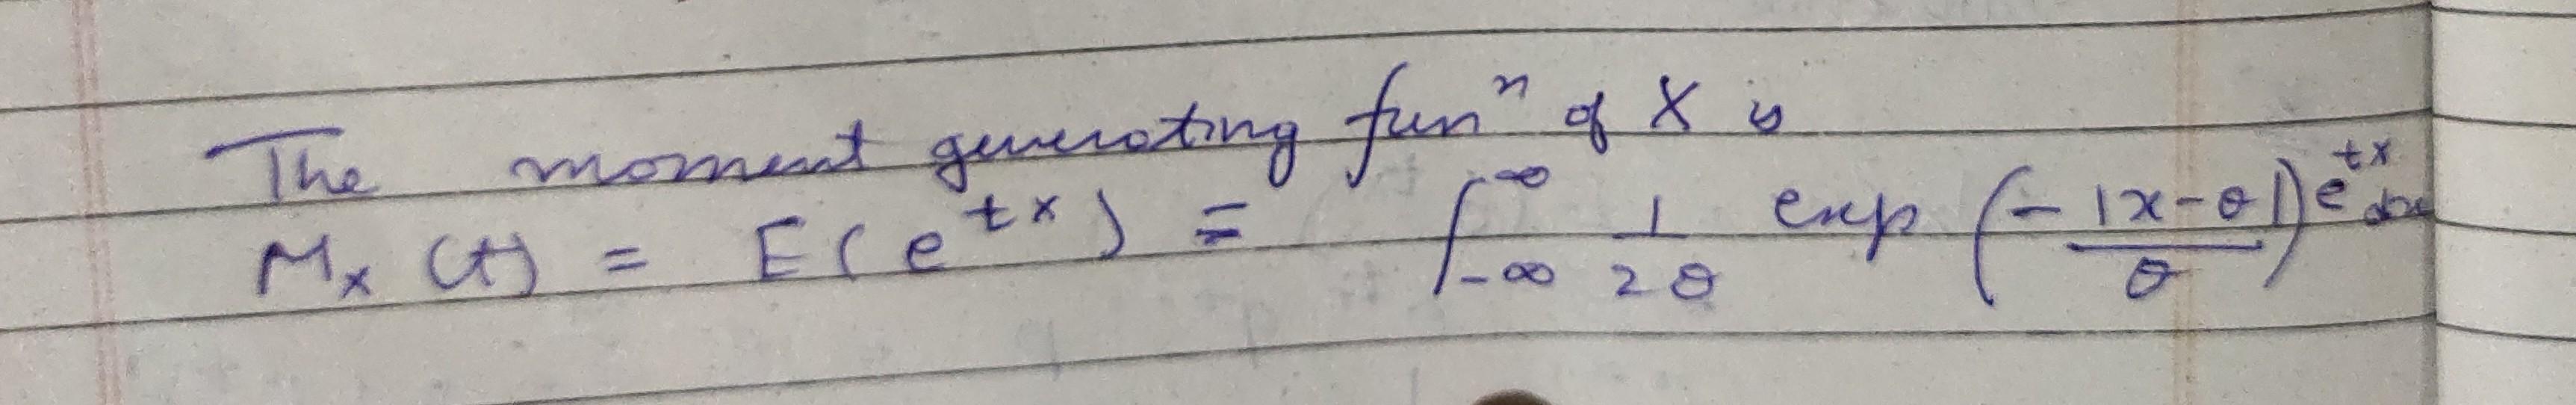 The moment generating funⁿ of X is
Mₓ(t) = E(e^{tx}) = ∫_{-∞}^{∞} 1/2θ exp(-|x-θ|/θ) e^{tx} dx